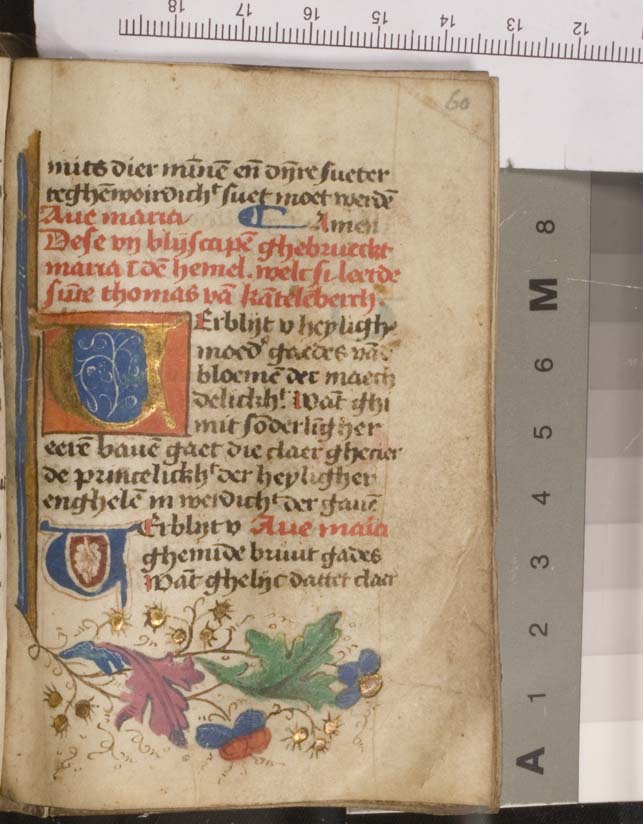 60
mits dier mīnē eñ dijre sueter
teghēwoirdichᵗ suet moet werdē
Aue maria Amen
Dese vij blijscapē ghebrueckt
maria ī dē hemel. welc si leerde
sūte thomas vā kātelēberch.
Erblijt v heyligh
moedᵉ gaedes vāē
bloemē der maech
delickhᵗ. Wāt ghi
mit soderlīgher
eerē bauē gaet die claer ghecier
de princelickhᵗ der heyligher
enghelē in werdichᵗ der gauē
Erblijt v Aue maria
ghemīde bruut gades
Wāt ghelijc dattet claer
18 17 16 15 14 13 12
8
M
6
5
4
3
2
1
A